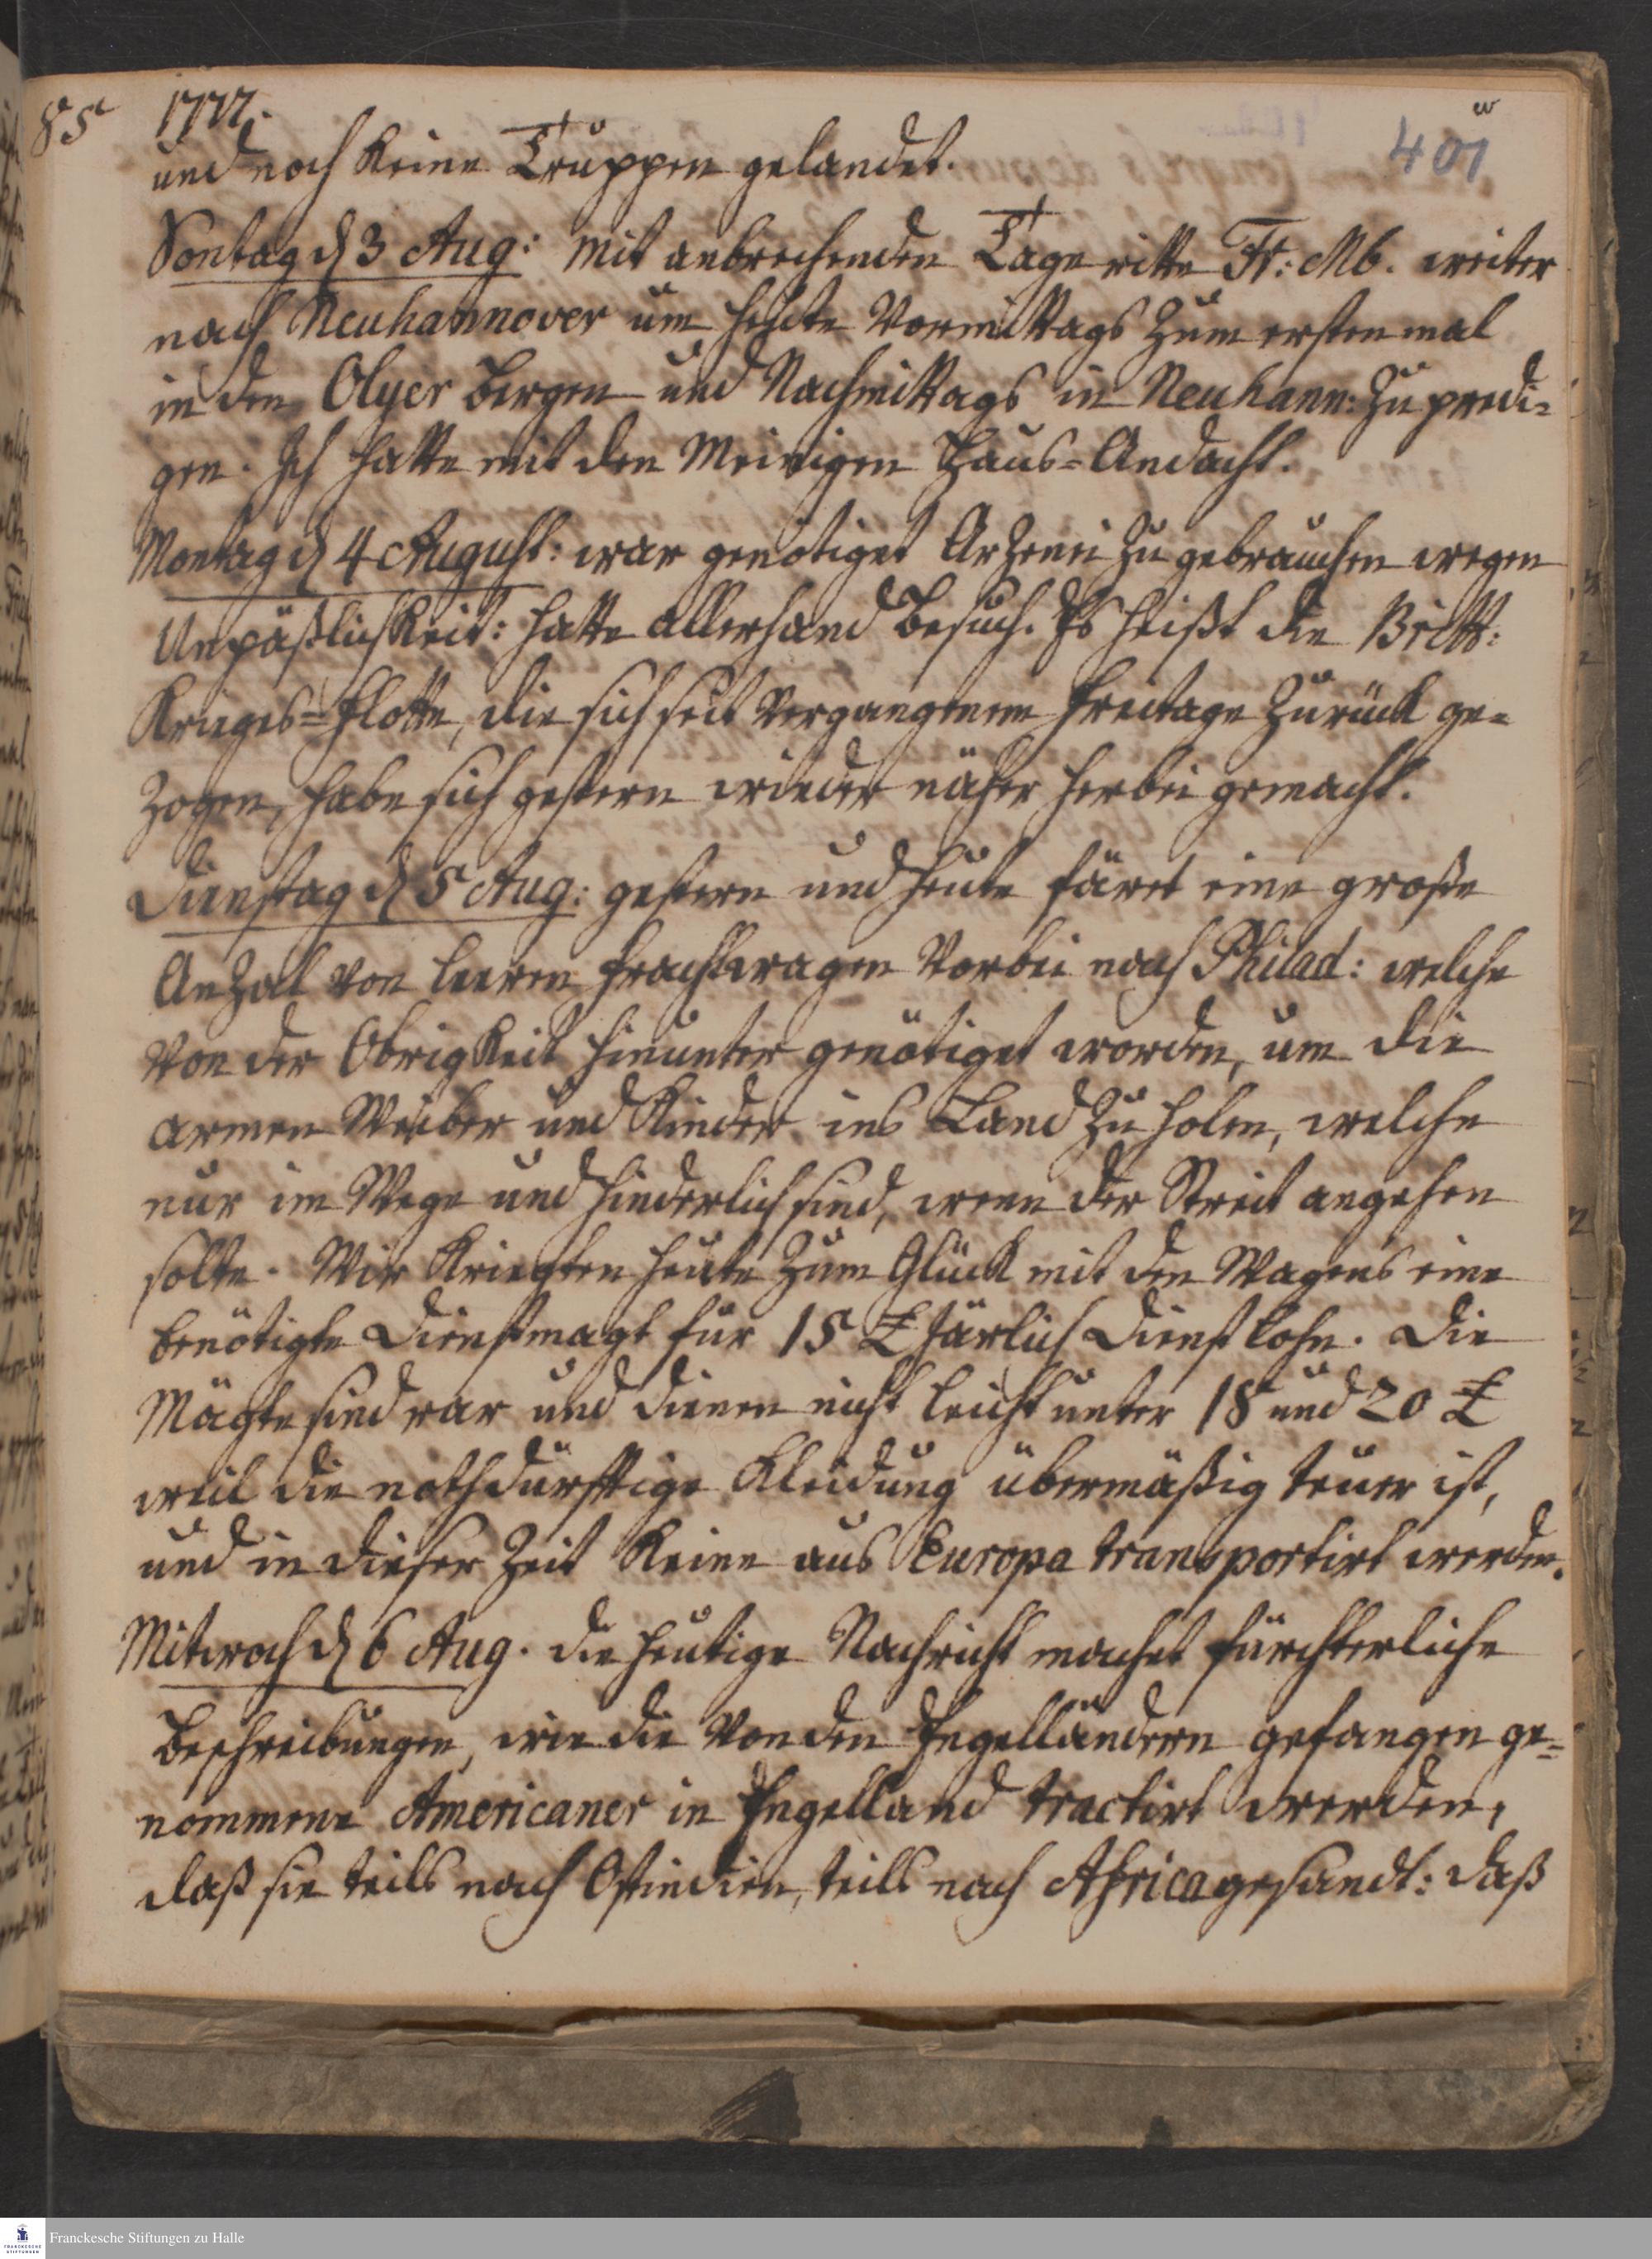 85 1777. 401
und noch keine Truppen gelandet.
Sontag d 3 Aug: mit anbrechenden Tage ritte Fr: Mb. weiter
nach Neuhannover um heute Vormittags zum ersten mal
in den Olyer Bergen und Nachmittags in Neuhann: zu predi=
gen. Ich hatte mit den Meinigen Haus=Andacht.
Montag d 4 August: war genötiget Arzenei zu gebrauchen wegen
Unpäßlichkeit: hatte allerhand Besuch. Es heißt die Britt:
Krieges=Flotte, die sich seit vergangenem Freitage zurück ge=
zogen, habe sich gestern wieder näher herbei gemacht.
Dienstag d 5 Aug: gestern und heute färet eine große
Anzal von leeren Frachtwagen vorbei nach Philad: welche
von der Obrigkeit hinunter genötiget worden, um die
armen Weiber und Kinder ins Land zu holen, welche
nur im Wege und hinderlich sind, wenn der Streit angehen
solte. Wir kriegten heute zum Glück mit den Wagens eine
benötigte Dienstmagt für 15 £ järlich Dienst lohn. Die
Mägte sind rar und dienen nicht leicht unter 18 und 20 £
weil die nothdürftige Kleidung übermäßig teuer ist,
und in dieser Zeit keine aus Europa transportirt werden.
Mitwoch d 6 Aug. die heutige Nachricht machet fürchterliche
Beschreibungen, wie die von den Engelländern gefangen ge=
nommene Americaner in Engelland tractirt werden,
daß sie teils nach Ostindien, teils nach Africa gesandt: daß
Franckesche Stiftungen zu Halle